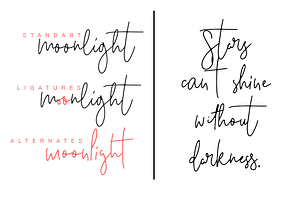 STANDART
moonlight
LIGATURES
moonlight
ALTERNATES
moonlight
Stars
can't shine
without
darkness.